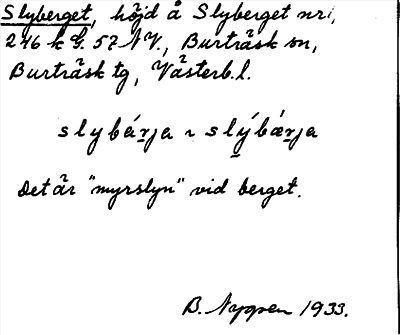 Slyberget, höjd å Slyberget nr 1,
246 k G. 57 NV., Burträsk sn,
Burträsk tg, Västerb. l.
slybárja ~ slýbárja
Det är "myrslyn" vid berget.
B. Nygren 1933.